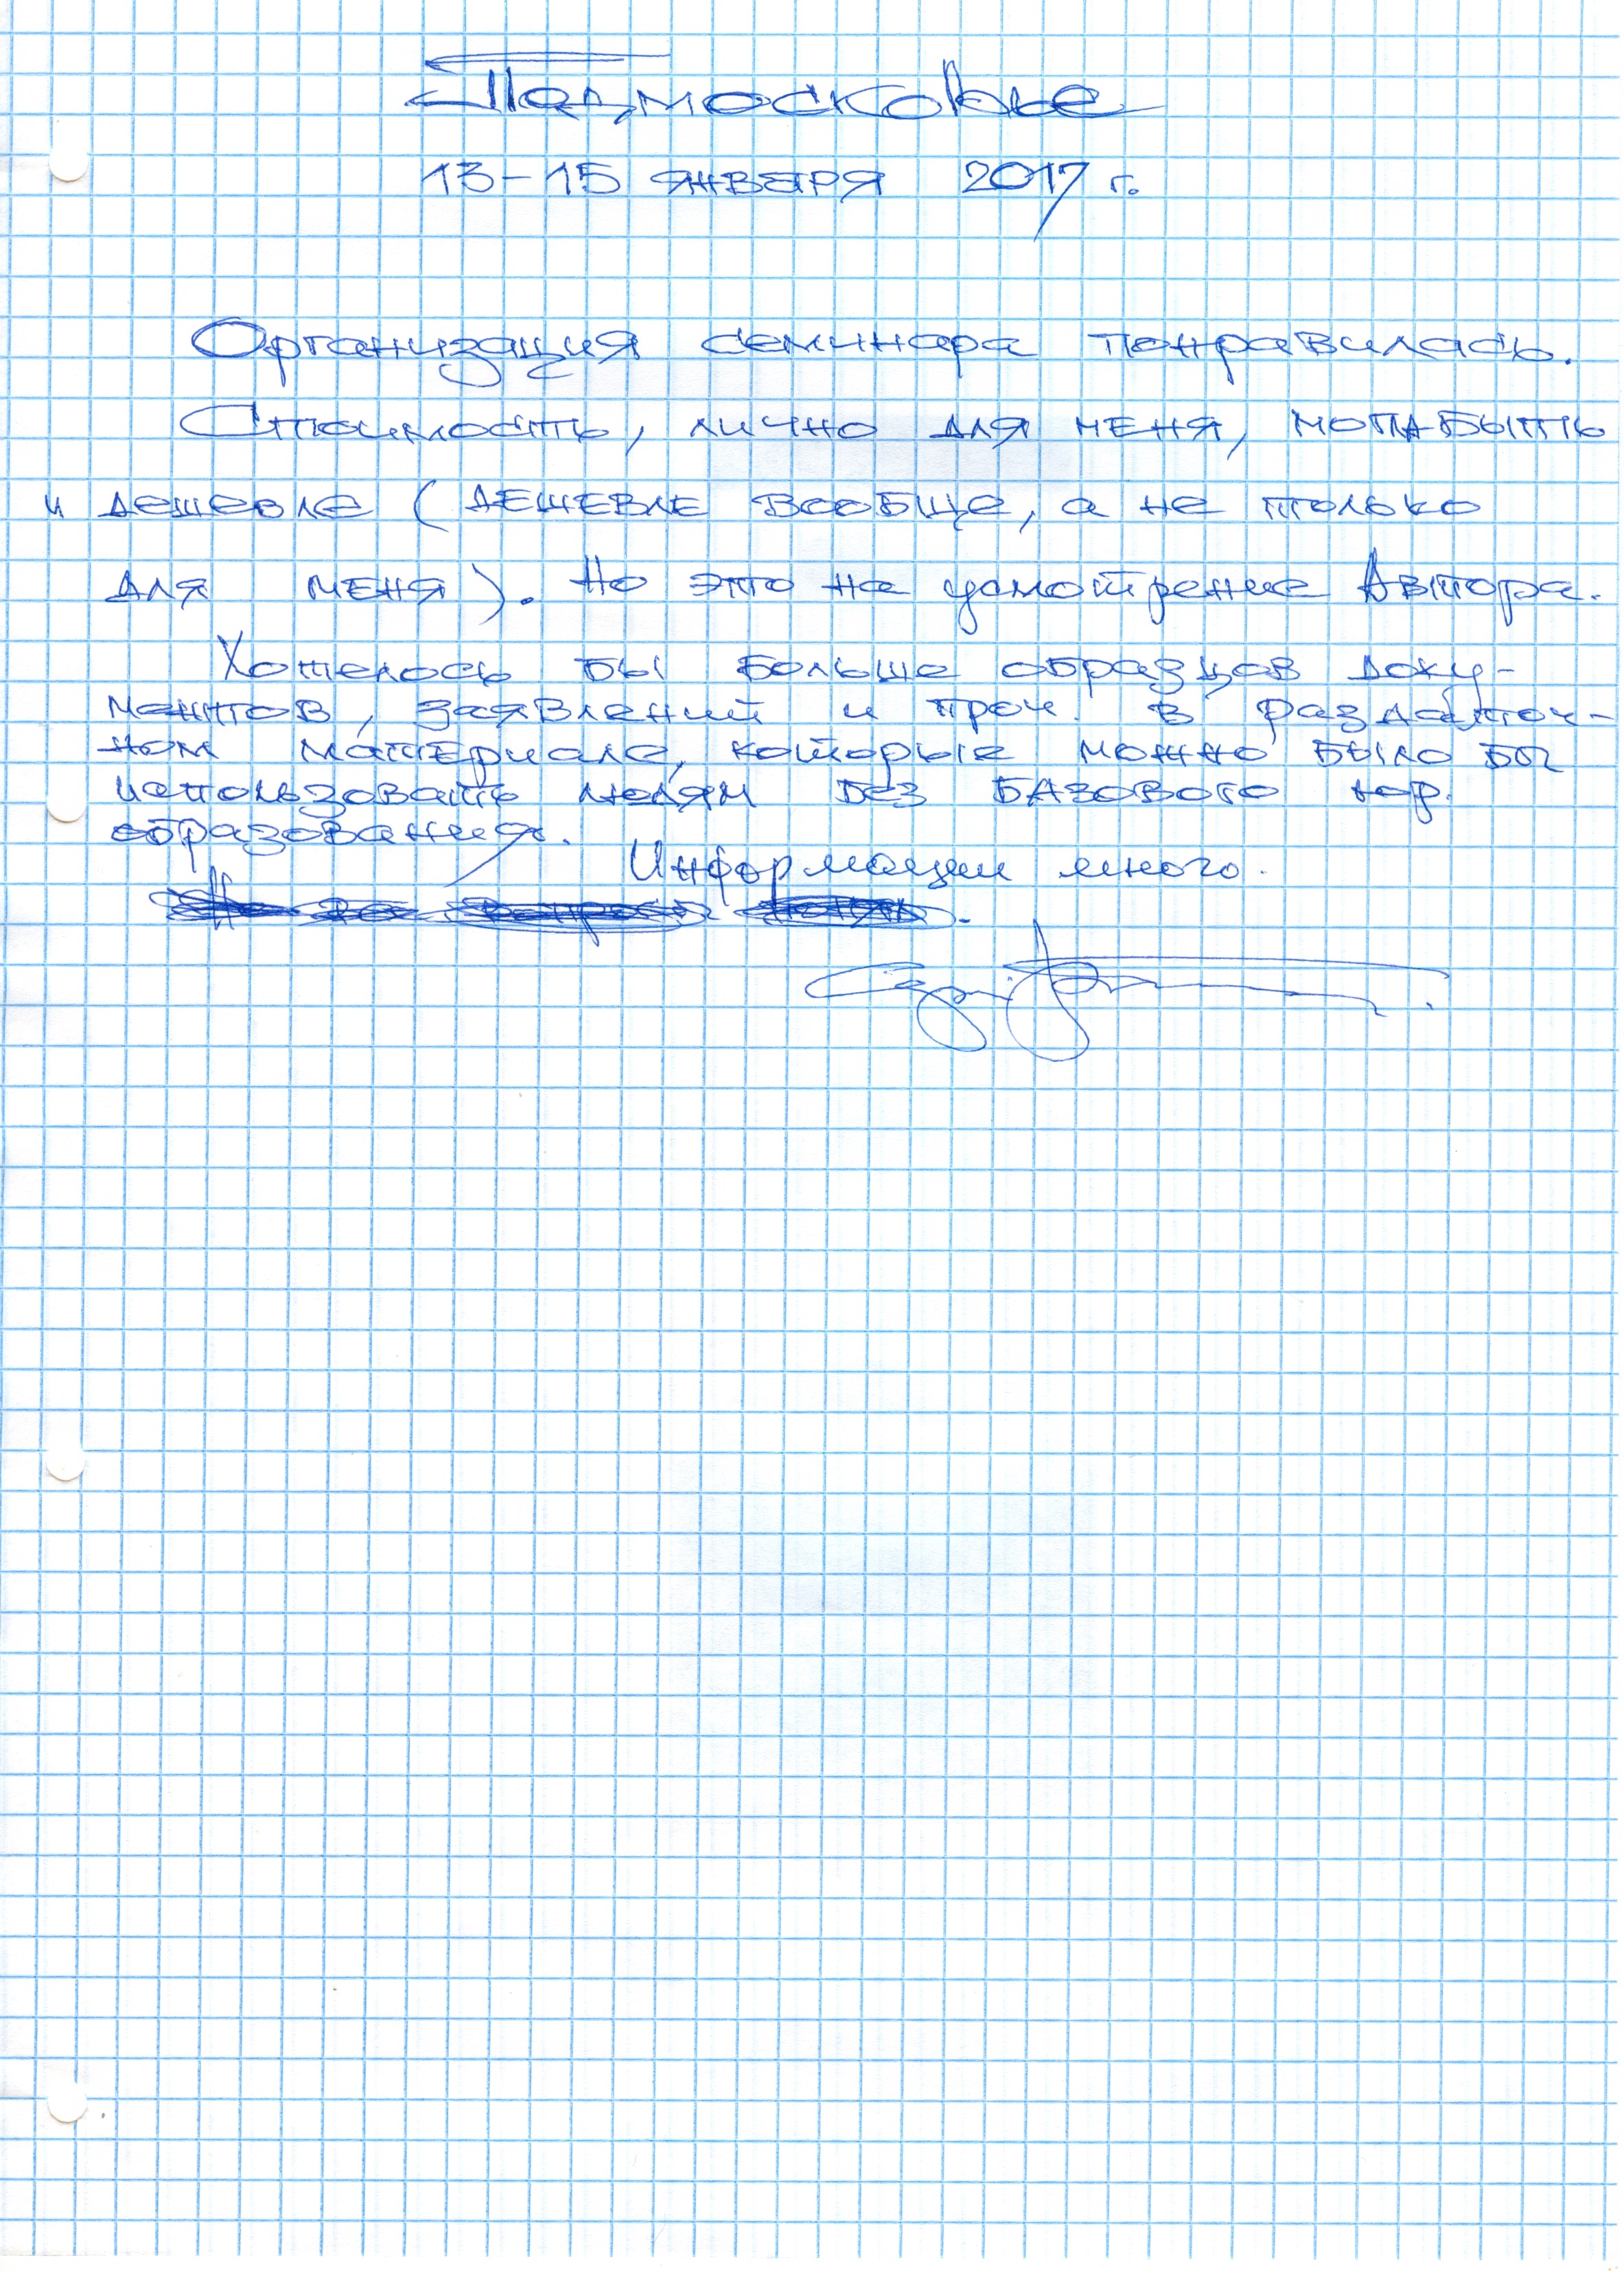 Подмосковье
13-15 января 2017 г.
Организация семинара понравилась.
Стоимость, лично для меня, могла быть
и дешевле (дешевле вообще, а не только
для меня). Но это на усмотрение Автора.
Хотелось бы больше образцов доку-
ментов, заявлений и проч. в раздаточ-
ном материале, которые можно было бы
использовать людям без базового юр.
образования.
Информации много.